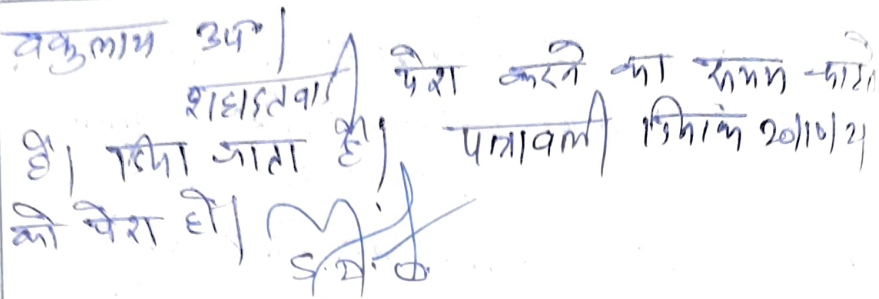 वकुलाय उप॰।
शहादतवादी पेश करने का समय चाहते
हैं। दिया जाता है। पत्रावली दिनांक 20/10/21
को पेश हो।